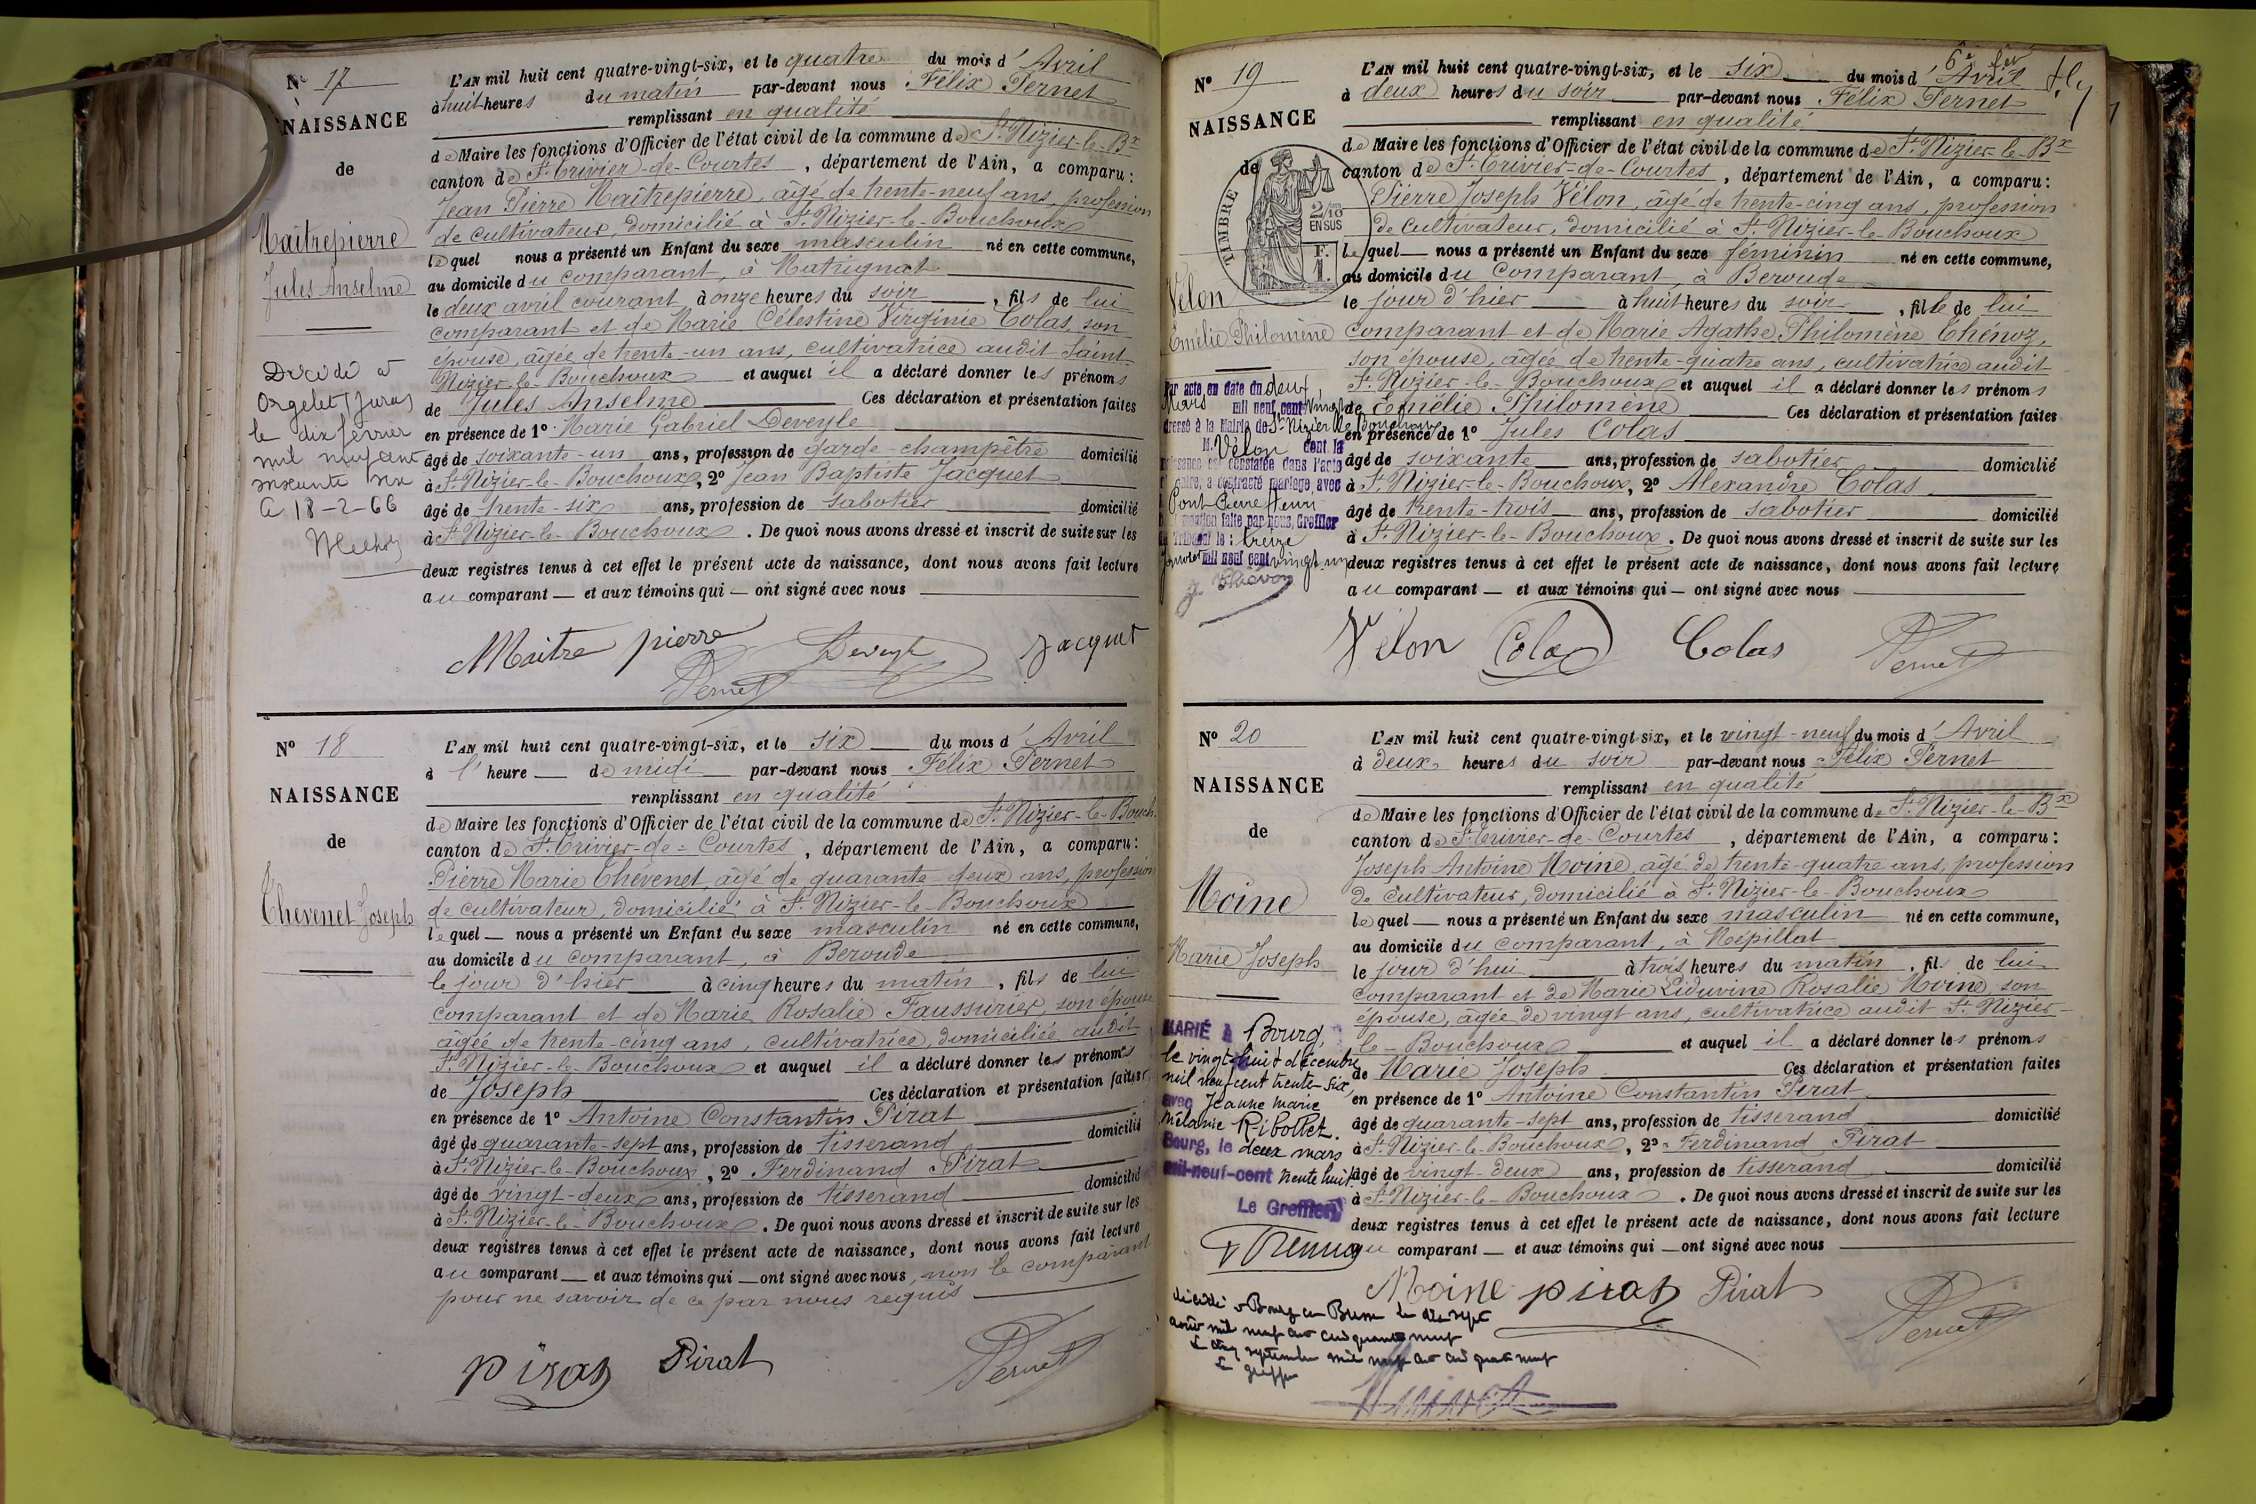 Nº 17
NAISSANCE
de
Maîtrepierre
Jules Anselme
Décédé à
Orgelet (Jura)
le dix février
mil neuf cent
soixante six
le 18-2-66
L'AN mil huit cent quatre-vingt-six, et le quatre du mois d'Avril
à huit heures du matin par-devant nous Félix Pernet
remplissant en qualité
de Maire les fonctions d'Officier de l'état civil de la commune de St Nizier-le-Bx
canton de St Trivier-de-Courtes, département de l'Ain, a comparu:
Jean Pierre Maîtrepierre, âgé de trente-neuf ans, profession
de cultivateur, domicilié à St Nizier-le-Bouchoux
lequel nous a présenté un Enfant du sexe masculin né en cette commune,
au domicile du comparant, à Matrignat
le deux avril courant, à onze heures du soir, fils de lui
comparant et de Marie Célestine Virginie Colas, son
épouse, âgée de trente-un ans, cultivatrice audit Saint-
Nizier-le-Bouchoux et auquel il a déclaré donner les prénoms
de Jules Anselme Ces déclaration et présentation faites
en présence de 1º Marie Gabriel Deveyle
âgé de soixante-un ans, profession de garde-champêtre domicilié
à St Nizier-le-Bouchoux, 2º Jean Baptiste Jacquet
âgé de trente-six ans, profession de sabotier domicilié
à St Nizier-le-Bouchoux. De quoi nous avons dressé et inscrit de suite sur les
deux registres tenus à cet effet le présent acte de naissance, dont nous avons fait lecture
au comparant — et aux témoins qui — ont signé avec nous
Maitrepierre Deveyle Jacquet
Pernet
Nº 18
NAISSANCE
de
Thevenet Joseph
L'AN mil huit cent quatre-vingt-six, et le six du mois d'Avril
à l'heure — de midi par-devant nous Félix Pernet
remplissant en qualité
de Maire les fonctions d'Officier de l'état civil de la commune de St Nizier-le-Bouch.
canton de St Trivier-de-Courtes, département de l'Ain, a comparu:
Pierre Marie Thévenet, âgé de quarante-deux ans, profession
de cultivateur, domicilié à St Nizier-le-Bouchoux
lequel — nous a présenté un Enfant du sexe masculin né en cette commune,
au domicile du comparant, à Beroude
le jour d'hier à cinq heures du matin, fils de lui
comparant et de Marie Rosalie Faussurier, son épouse
âgée de trente-cinq ans, cultivatrice, domiciliée audit
St Nizier-le-Bouchoux et auquel il a déclaré donner les prénoms
de Joseph Ces déclaration et présentation faites
en présence de 1º Antoine Constantin Pirat
âgé de quarante-sept ans, profession de tisserand domicilié
à St Nizier-le-Bouchoux, 2º Ferdinand Pirat
âgé de vingt-deux ans, profession de tisserand domicilié
à St Nizier-le-Bouchoux. De quoi nous avons dressé et inscrit de suite sur les
deux registres tenus à cet effet le présent acte de naissance, dont nous avons fait lecture
au comparant — et aux témoins qui — ont signé avec nous, non le comparant
pour ne savoir de ce par nous requis
Pirat Pirat Pernet
Nº 19
NAISSANCE
de
TIMBRE
2/10 EN SUS
F. 1.
Vélon
Emélie Philomène
Par acte en date du deux
Mars mil neuf cent vingt
dressé à la Mairie de St Nizier le Bouchoux
M. Vélon dont la
naissance est constatée dans l'acte
, a contracté mariage avec
Pont Pierre Henri
mention faite par nous, Greffier
Tribunal le: treize
Janvier mil neuf cent vingt un
L'AN mil huit cent quatre-vingt-six, et le six du mois d'Avril
à deux heures du soir par-devant nous Félix Pernet
remplissant en qualité
de Maire les fonctions d'Officier de l'état civil de la commune de St Nizier-le-Bx
canton de St Trivier-de-Courtes, département de l'Ain, a comparu:
Pierre Joseph Vélon, âgé de trente-cinq ans, profession
de cultivateur, domicilié à St Nizier-le-Bouchoux
lequel — nous a présenté un Enfant du sexe féminin né en cette commune,
au domicile du comparant, à Beroude
le jour d'hier à huit heures du soir, fille de lui
comparant et de Marie Agathe Philomène Thénoz,
son épouse, âgée de trente-quatre ans, cultivatrice audit
St Nizier-le-Bouchoux et auquel il a déclaré donner les prénoms
de Emélie Philomène Ces déclaration et présentation faites
en présence de 1º Jules Colas
âgé de soixante ans, profession de sabotier domicilié
à St Nizier-le-Bouchoux, 2º Alexandre Colas
âgé de trente-trois ans, profession de sabotier domicilié
à St Nizier-le-Bouchoux. De quoi nous avons dressé et inscrit de suite sur les
deux registres tenus à cet effet le présent acte de naissance, dont nous avons fait lecture
au comparant — et aux témoins qui — ont signé avec nous
Vélon Colas Colas Pernet
Nº 20
NAISSANCE
de
Moine
Marie Joseph
MARIÉ à Bourg,
le vingt-huit décembre
mil neuf cent trente-six
avec Jeanne Marie
Mélanie Ribollet.
Bourg, le deux mars
mil-neuf-cent trente huit
Le Greffier,
décédé à Bourg en Bresse le dix sept
août mil neuf cent cinquante neuf
le cinq septembre mil neuf cent cinquante neuf
Le greffier
L'AN mil huit cent quatre-vingt-six, et le vingt-neuf du mois d'Avril
à deux heures du soir par-devant nous Félix Pernet
remplissant en qualité
de Maire les fonctions d'Officier de l'état civil de la commune de St Nizier-le-Bx
canton de St Trivier-de-Courtes, département de l'Ain, a comparu:
Joseph Antoine Moine, âgé de trente-quatre ans, profession
de cultivateur, domicilié à St Nizier-le-Bouchoux
lequel — nous a présenté un Enfant du sexe masculin né en cette commune,
au domicile du comparant, à Népillat
le jour d'hui à trois heures du matin, fils de lui
comparant et de Marie Liduvine Rosalie Moine, son
épouse, âgée de vingt ans, cultivatrice audit St Nizier-
le-Bouchoux et auquel il a déclaré donner les prénoms
de Marie Joseph Ces déclaration et présentation faites
en présence de 1º Antoine Constantin Pirat
âgé de quarante-sept ans, profession de tisserand domicilié
à St Nizier-le-Bouchoux, 2º Ferdinand Pirat
âgé de vingt-deux ans, profession de tisserand domicilié
à St Nizier-le-Bouchoux. De quoi nous avons dressé et inscrit de suite sur les
deux registres tenus à cet effet le présent acte de naissance, dont nous avons fait lecture
au comparant — et aux témoins qui — ont signé avec nous
Moine Pirat Pirat Pernet